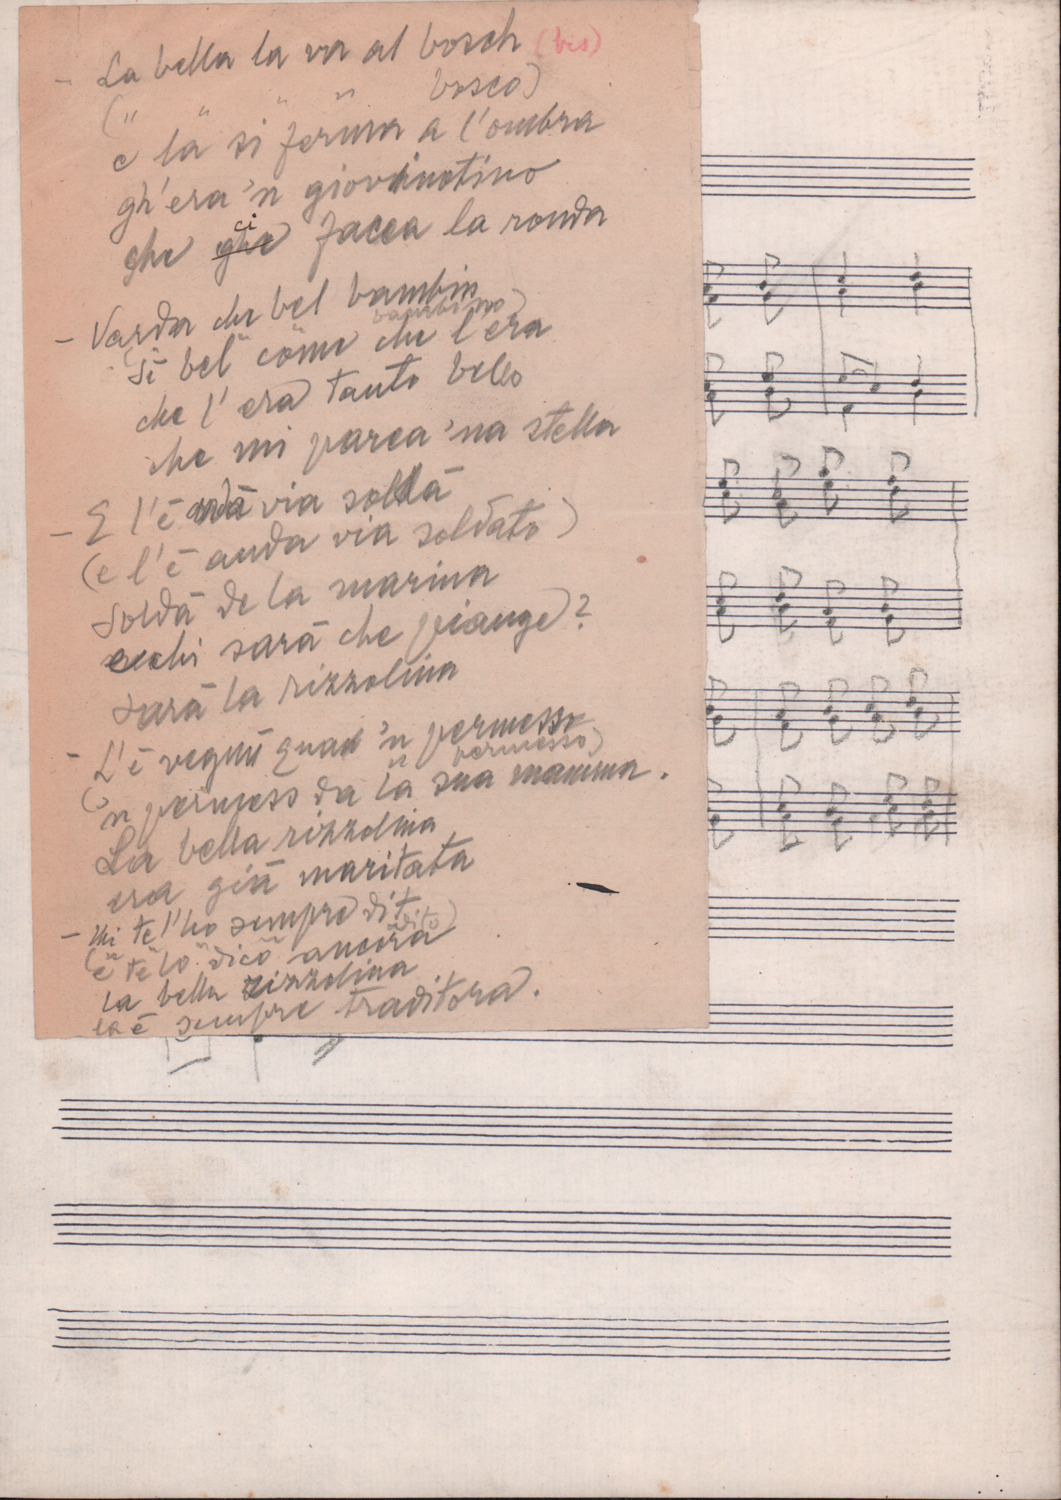 - La bella la va al bosch (bis)
(" " " " bosco)
e là si ferma a l'ombra
gh'era 'n giovinotino
che ghe ci facea la ronda
- Varda che bel bambin
(" " " " bambino)
Sì bel come che l'era
che l'era tanto bello
che mi parea 'na stella
- E l'è andà via soldà
(e l'è anda via soldato)
Soldà de la marina
e chi sarà che piange?
sarà la rizzolina
- L'è vegnù quà 'n permesso
(" " " " permesso)
'n permess da la sua mamma.
La bella rizzolina
era già maritata
- Mi te l'ho sempre dit
(" " " " " dito)
e te lo dico ancora
la bella rizzolina
la è sempre traditora.